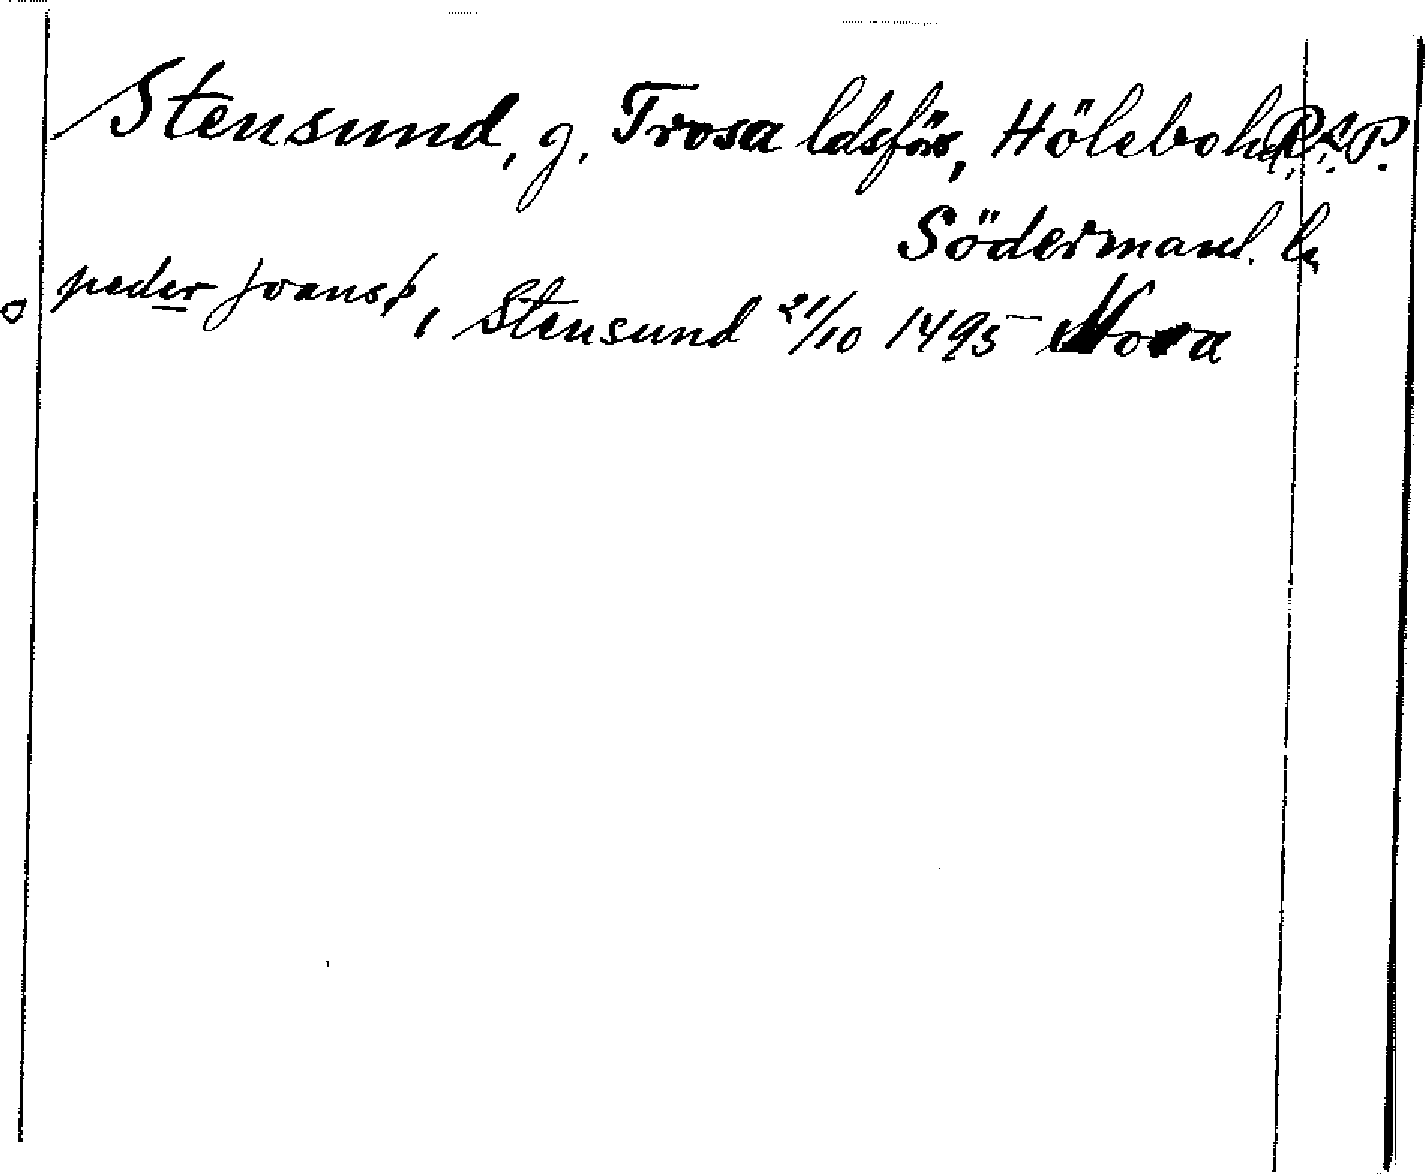 Stensund, g. Trosa ldsförs, Hölebo hd R.L.P.
Södermanl. l.
peder joansß, Stensund 21/10 1495